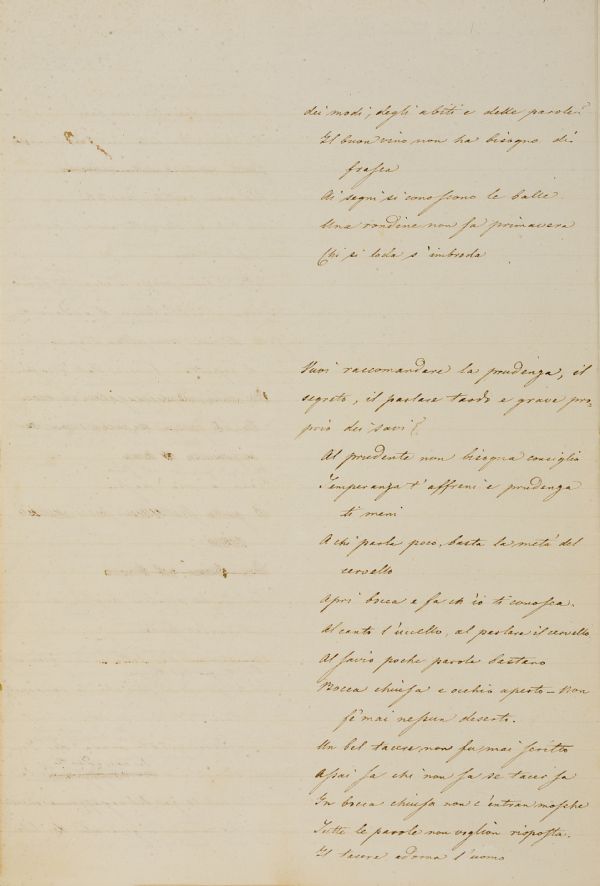 dei modi, degli abiti e delle parole?
Il buon vino non ha bisogno di
frasca
Ai segni si conoscono le balle.
Una rondine non fa primavera
Chi si loda s'imbroda
Vuoi raccomandare la prudenza, il
segreto, il parlare tardo e grave pro-
prio dei savi?
Al prudente non bisogna consiglio
Temperanza t'affreni e prudenza
ti meni
A chi parla poco, basta la metà del
cervello
Apri bocca e fa ch'io ti conosca.
Al canto l'uccello, al parlare il cervello
Al savio poche parole bastano
Bocca chiusa e occhio aperto – Non
fè mai nessun deserto.
Un bel tacere non fu mai scritto
Assai sa chi non sa se tacer sa
In bocca chiusa non c'entran mosche
Tutte le parole non voglion risposta.
Il tacere adorna l'uomo